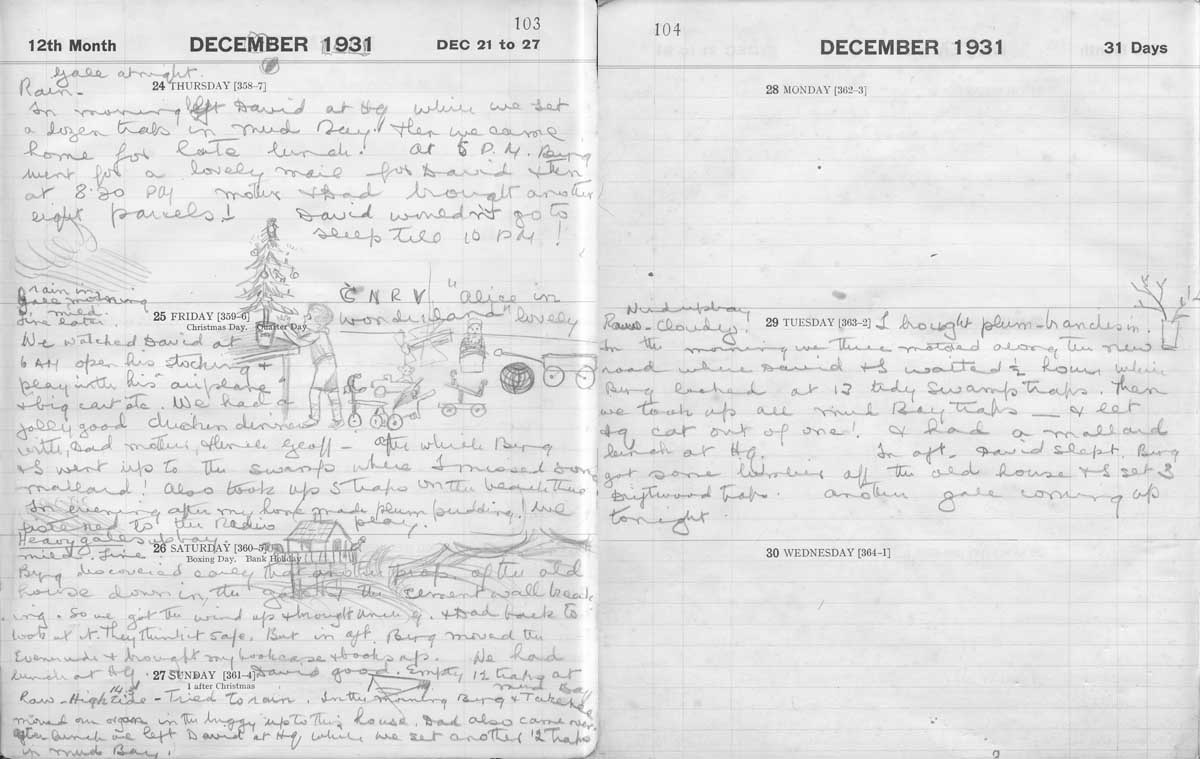 103
12th Month DECEMBER 1931 DEC 21 to 27
Gale at night.
24 THURSDAY [358–7]
Rain.
In morning left David at Hq while we set
a dozen traps in Mud Bay! Then we came
home for late lunch! At 5 P.M. Burg
went for a lovely mail for David & then
at 8.30 PM mother & Dad brought another
eight parcels! David wouldn't go to
sleep till 10 PM!
rain in
morning
fine later.
25 FRIDAY [359–6]
Christmas Day. Quarter Day.
C N R V, "Alice in
wonderland" lovely
We watched David at
6 AM open his stocking &
play with his "airplane"
& big cart etc. We had a
jolly good chicken dinner
with Dad, mother, & Uncle Geoff – after which Burg
& I went up to the swamp where I missed some
mallard! Also took up 5 traps on the beach then
In evening after my home made plum pudding! We
to the Radio play.
Heavy gales
mild – Fine
26 SATURDAY [360–5]
Boxing Day. Bank Holiday
Burg discovered early that of the old
house down in the gale & the cement wall break
ing. So we got the wind up & brought Uncle G. & Dad back to
work at it. They think it safe. But in aft. Burg moved the
Evenrude & brought my bookcase & books up. We had
lunch at Hq. David good. Empty 12 traps at
Mud Bay
27 SUNDAY [361–4]
1 after Christmas
Raw – High tide – Tried to rain. In the morning Burg &
moved our organ in the buggy up to this house. Dad also came over
After lunch we left David at Hq while we set another 12 traps
in Mud Bay!
104
DECEMBER 1931 31 Days
28 MONDAY [362–3]
29 TUESDAY [363–2] I brought plum-branches in.
Raw – Cloudy.
In the morning we three motored along the new
road where David & I waited ½ hour while
Burg looked at 13 tidy swamp traps. Then
we took up all Mud Bay traps – & let
Hq cat out of one! & had a mallard
lunch at Hq. In aft. David slept. Burg
got some lumber off the old house & I set 3
Driftwood traps. Another gale coming up
tonight
30 WEDNESDAY [364–1]